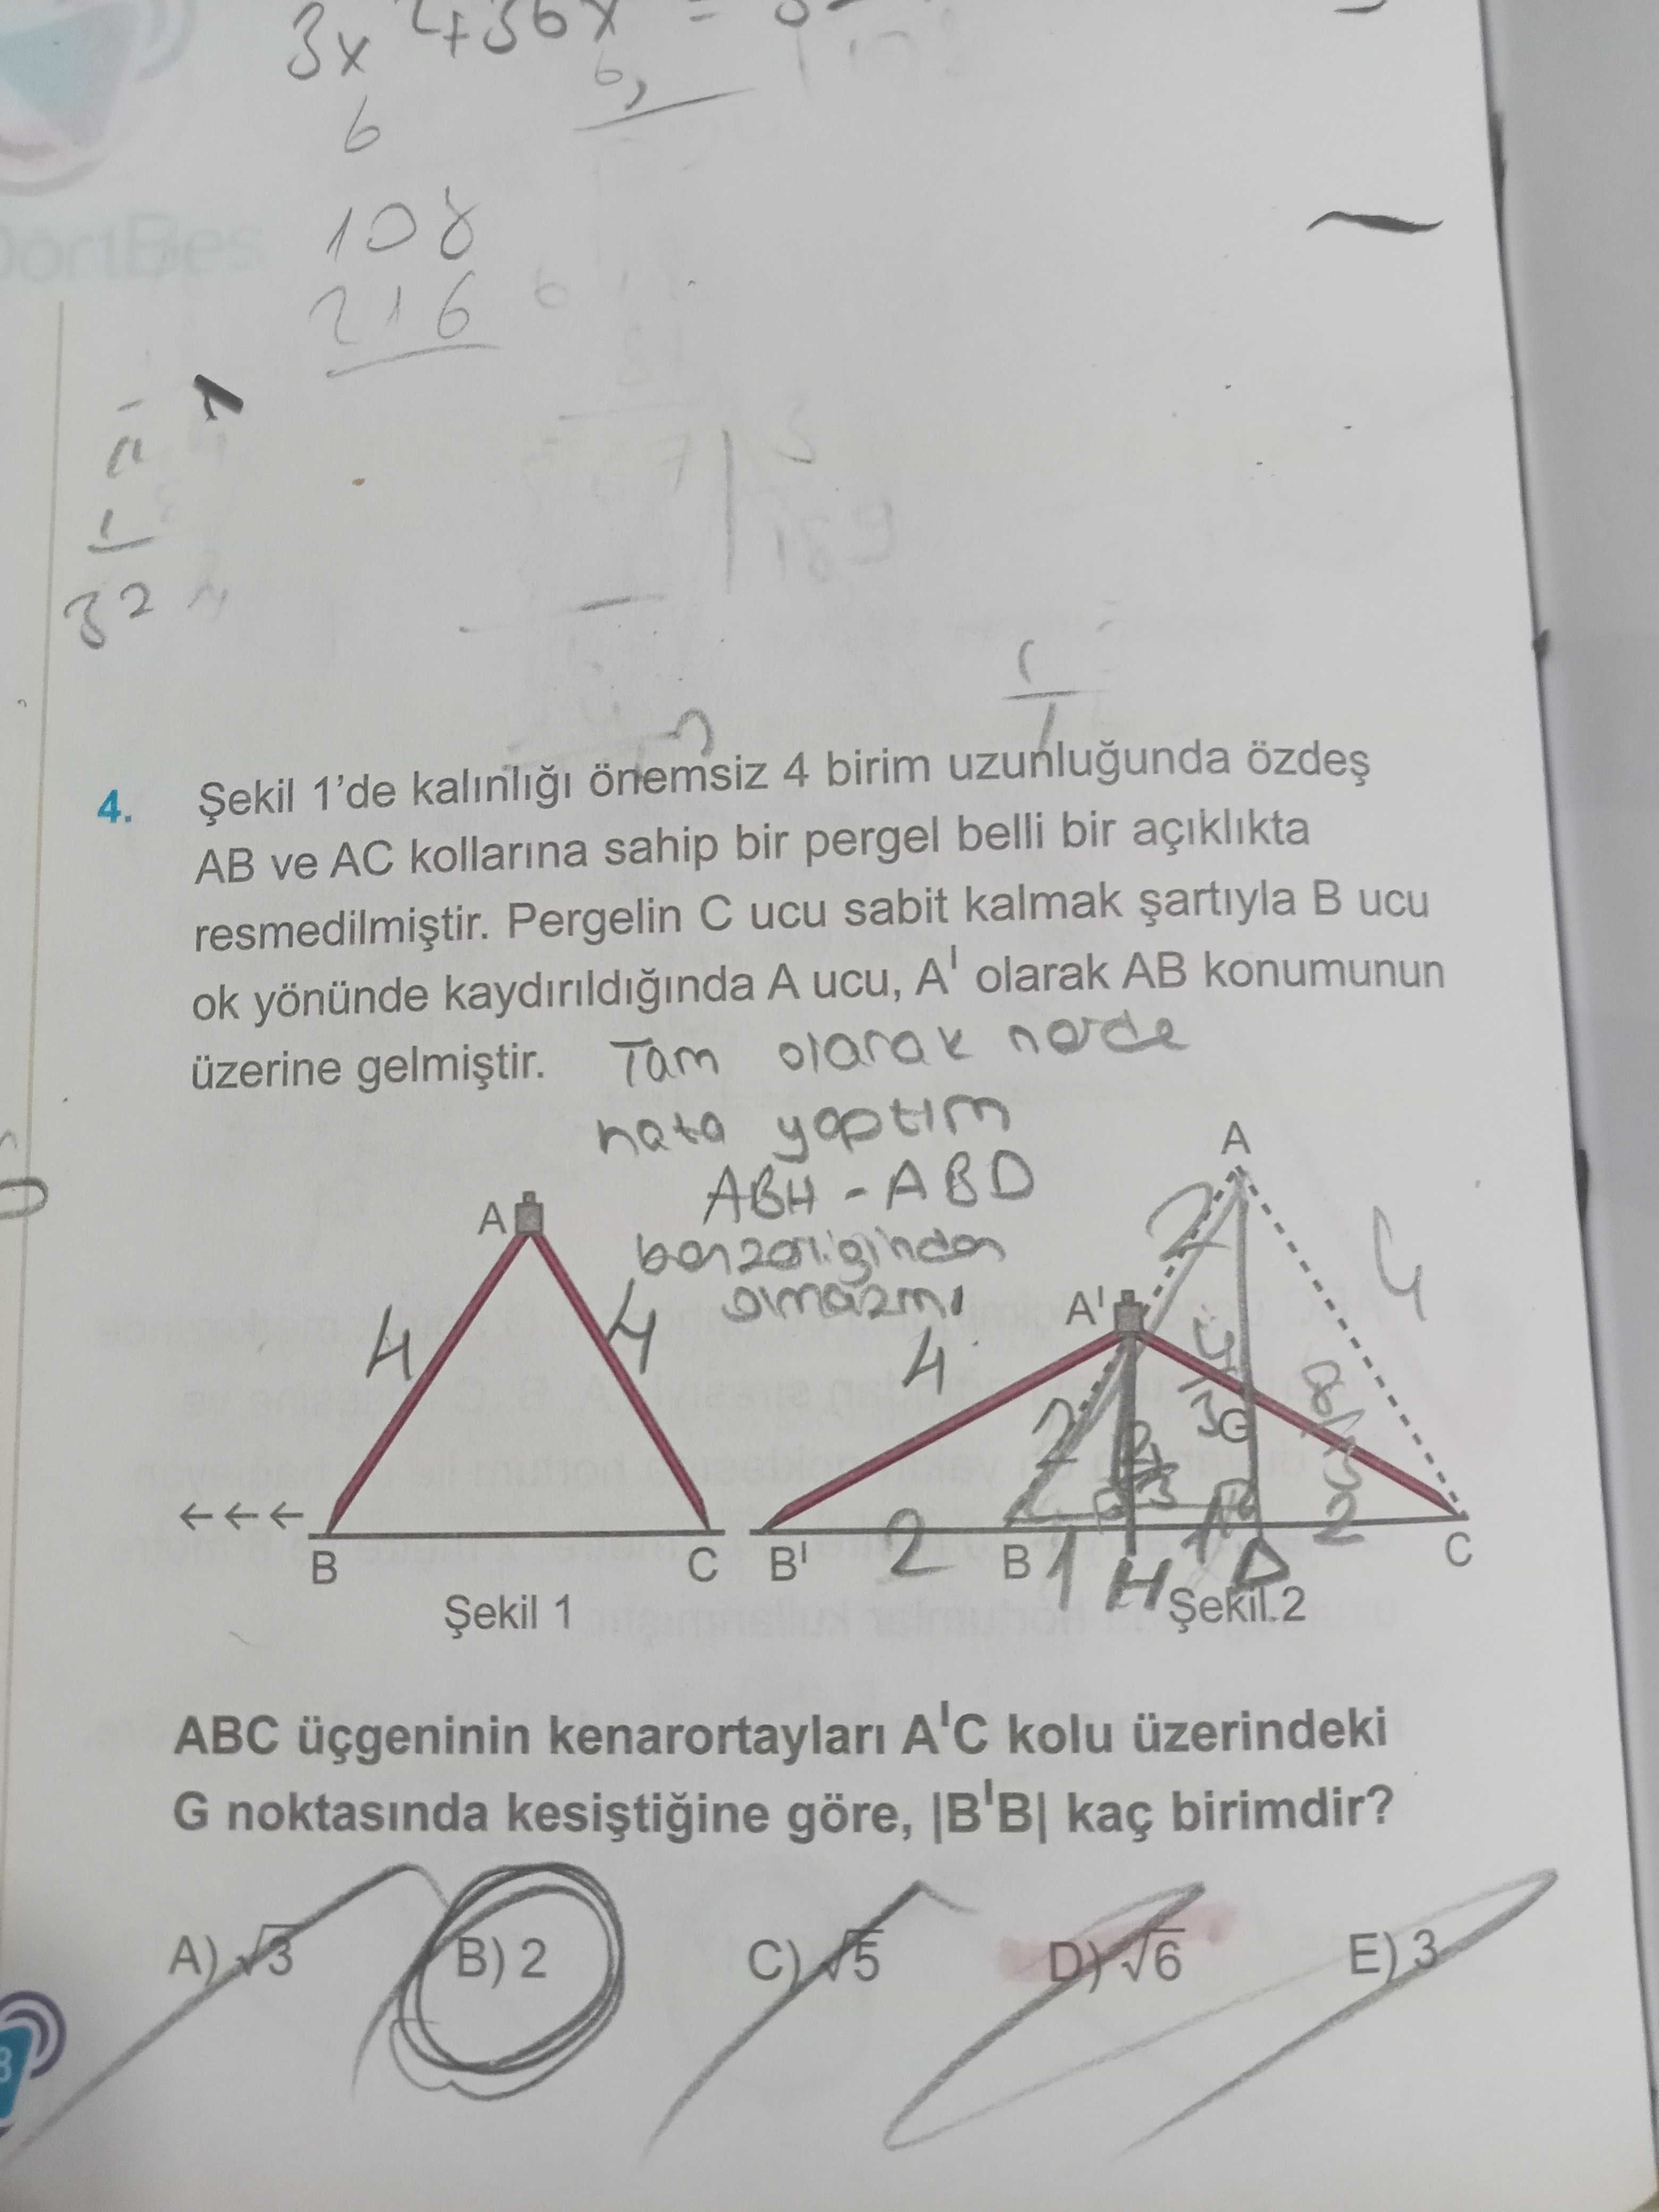 3x² + 36x = 0
6
6
108
216
DörtBeş
1
32
3
189
4. Şekil 1'de kalınlığı önemsiz 4 birim uzunluğunda özdeş
AB ve AC kollarına sahip bir pergel belli bir açıklıkta
resmedilmiştir. Pergelin C ucu sabit kalmak şartıyla B ucu
ok yönünde kaydırıldığında A ucu, A' olarak AB konumunun
üzerine gelmiştir.
Tam olarak nerde
hata yaptım
ABH - ABD
benzerliğinden
olmazmı
A
4
4
←←←
B
C
Şekil 1
A
A'
2
4
4
4/3
8/3
G
2
B'
2
B
1
H
1
D
2
C
Şekil 2
ABC üçgeninin kenarortayları A'C kolu üzerindeki
G noktasında kesiştiğine göre, |B'B| kaç birimdir?
A) √3 B) 2 C) √5 D) √6 E) 3